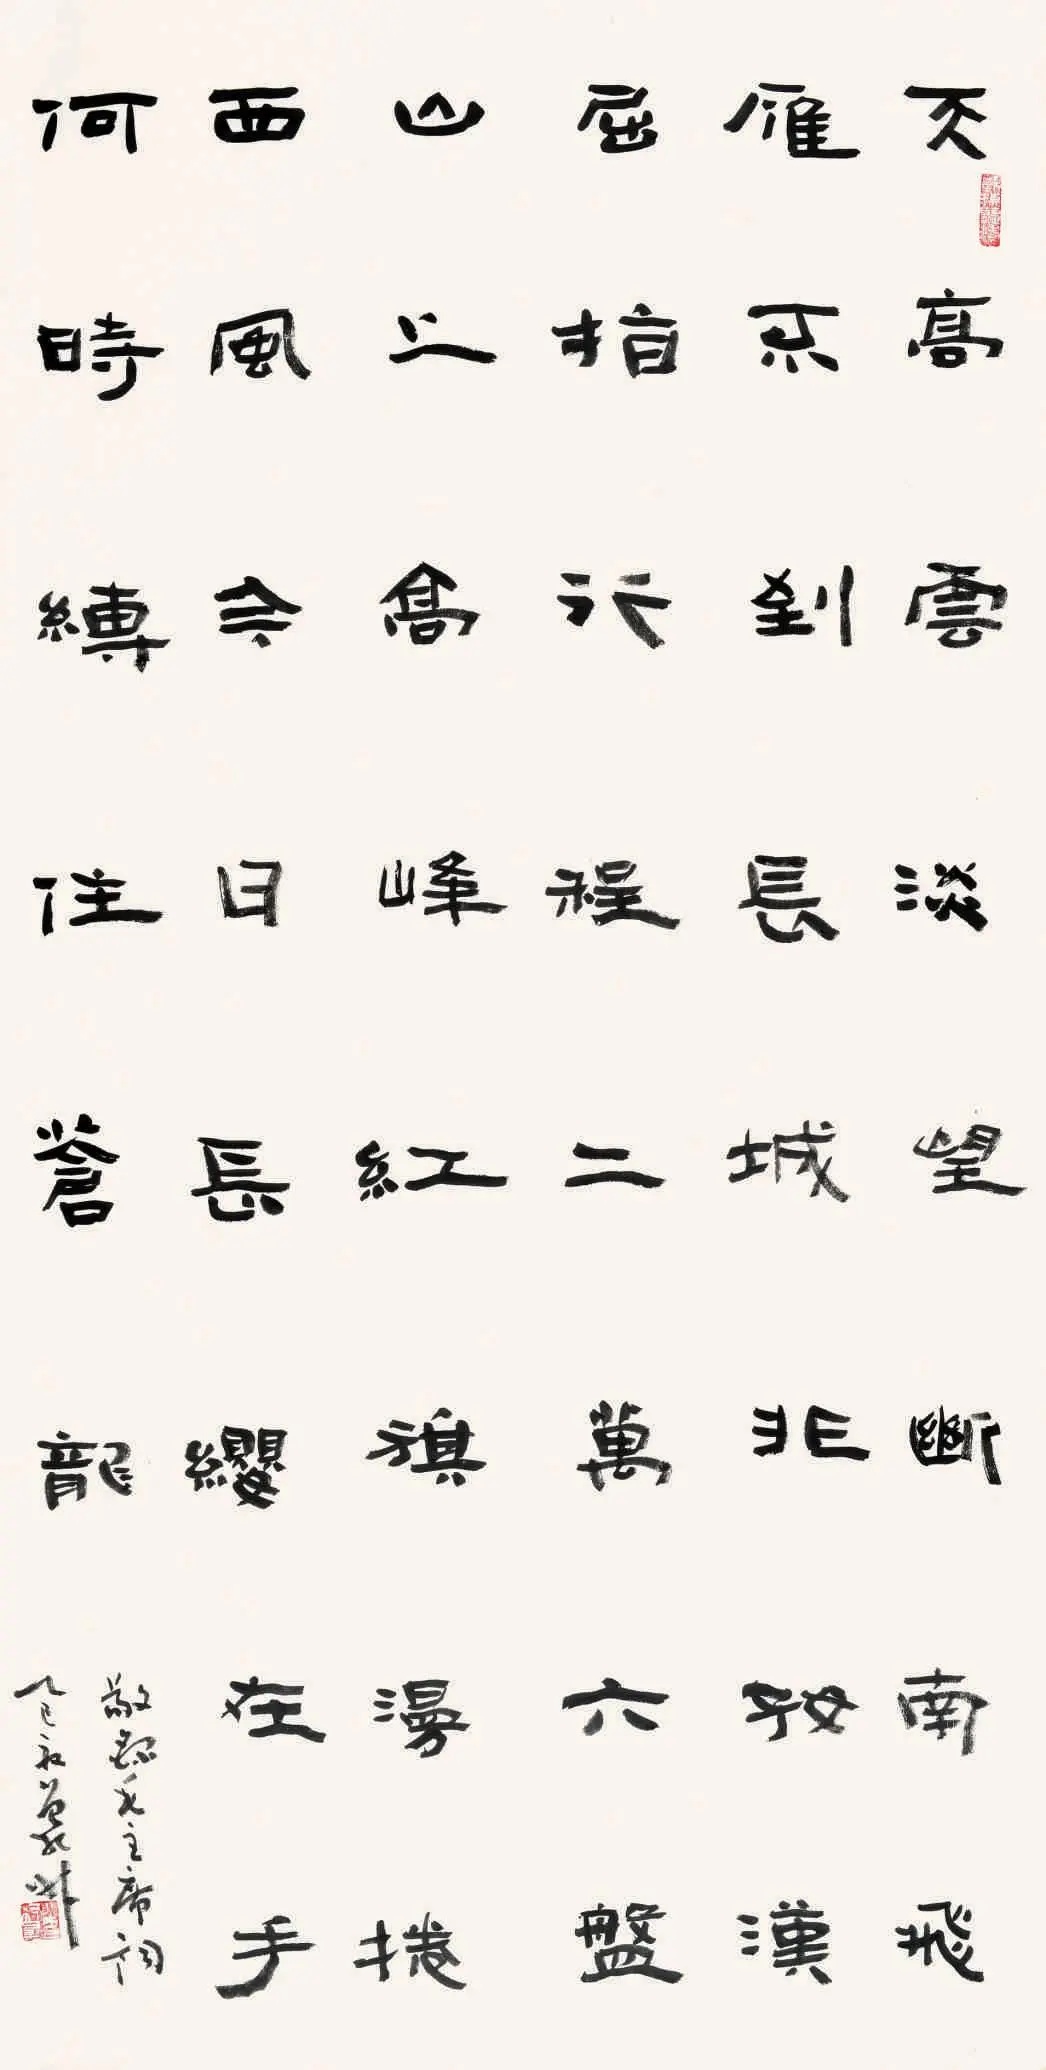 天高雲淡望斷南飛
雁不到長城非好漢
屈指行程二萬六盤
山上高峰紅旗漫捲
西風今日長纓在手
何時縛住蒼龍
敬錄毛主席詞
乙巳初